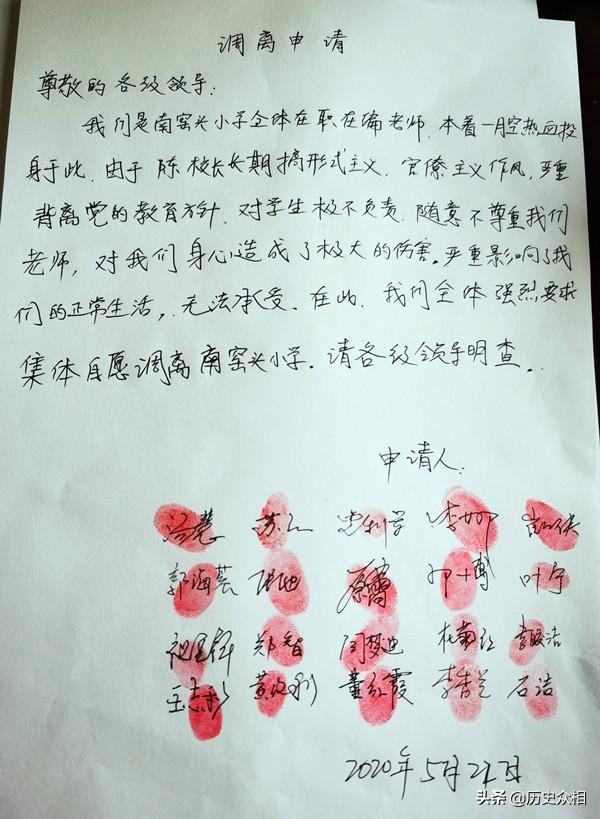 调离申请
尊敬的各级领导:
我们是南窑头小学全体在职在编老师.本着一腔热血投
身于此.由于陈校长长期搞形式主义.官僚主义作风,严重
背离党的教育方针.对学生极不负责.随意不尊重我们
老师,对我们身心造成了极大的伤害。严重影响了我
们的正常生活,无法承受.在此.我们全体强烈要求
集体自愿调离南窑头小学.请各级领导明查.
申请人:
苏红 李娜
郭海芸 原蕾 叶宁
郑智 闫梦迪 杜菊红
王志彩 董红霞 李书兰 石洁
2020年5月21日
头条@历史众相